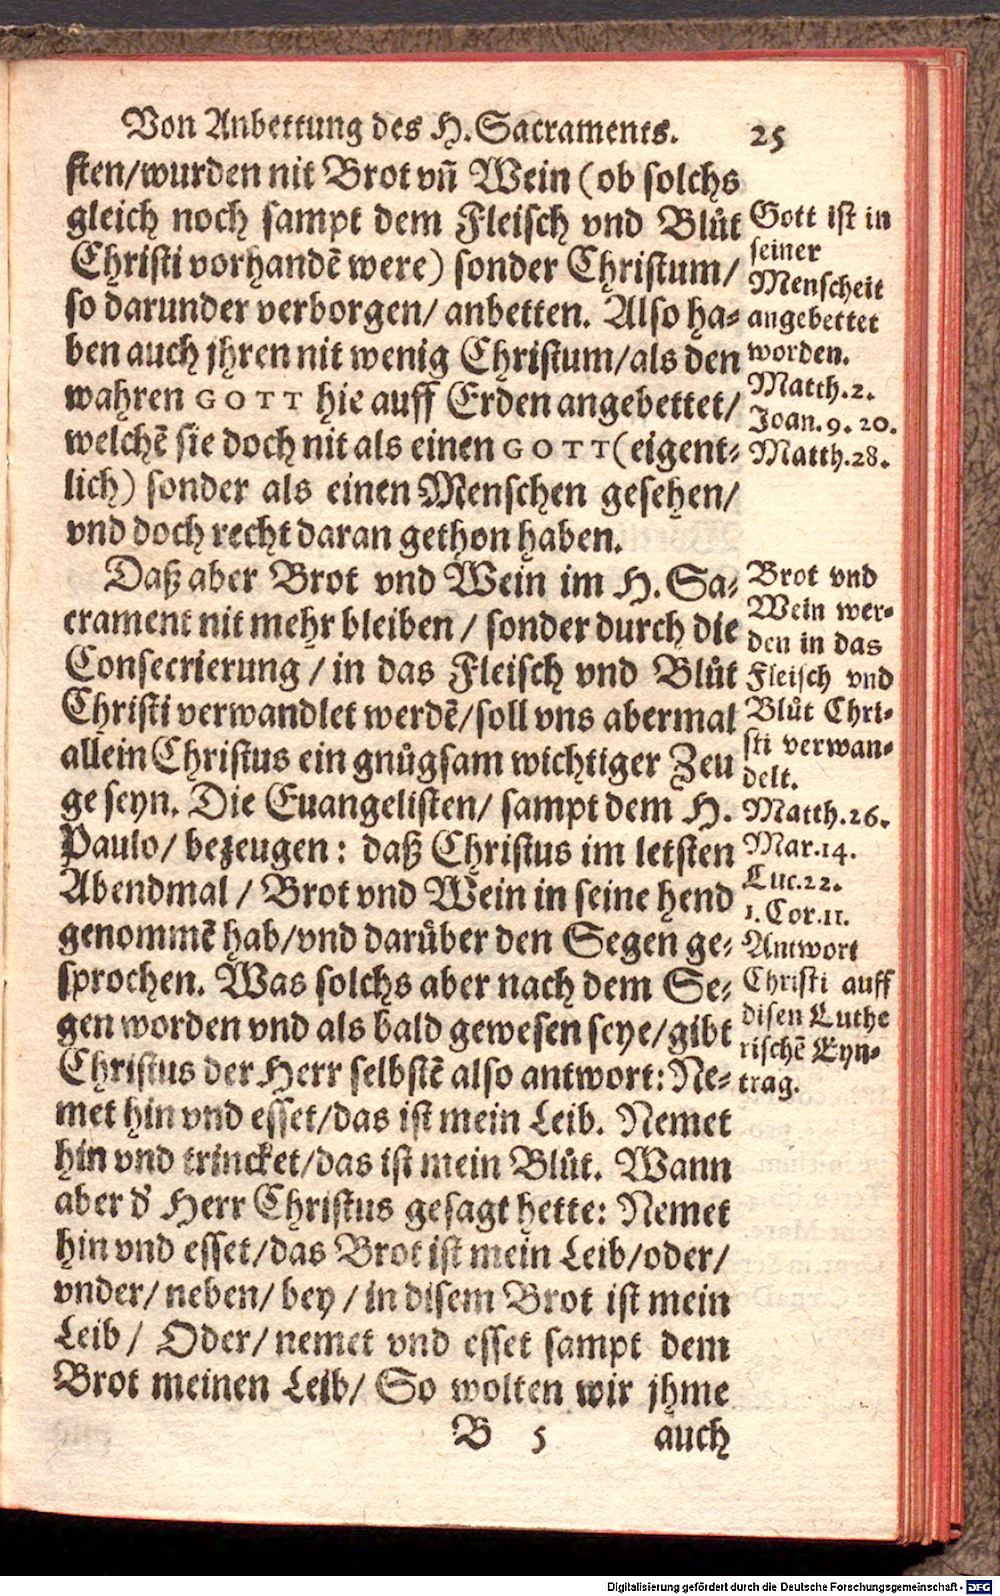 Von Anbettung des H. Sacraments. 25
sten/wurden nit Brot vñ Wein (ob solchs
gleich noch sampt dem Fleisch vnd Blůt
Christi vorhandẽ were) sonder Christum/
so darunder verborgen/ anbetten. Also ha-
ben auch jhren nit wenig Christum/als den
wahren GOTT hie auff Erden angebettet/
welchẽ sie doch nit als einen GOTT (eigent-
lich) sonder als einen Menschen gesehen/
vnd doch recht daran gethon haben.
Daß aber Brot vnd Wein im H. Sa-
crament nit mehr bleiben / sonder durch die
Consecrierung / in das Fleisch vnd Blůt
Christi verwandlet werdẽ/soll vns abermal
allein Christus ein gnůgsam wichtiger Zeu
ge seyn. Die Euangelisten/ sampt dem H.
Paulo/ bezeugen: daß Christus im letsten
Abendmal / Brot vnd Wein in seine hend
genommẽ hab/vnd darůber den Segen ge-
sprochen. Was solchs aber nach dem Se-
gen worden vnd als bald gewesen seye/gibt
Christus der Herr selbstẽ also antwort: Ne-
met hin vnd esset/das ist mein Leib. Nemet
hin vnd trincket/das ist mein Blůt. Wann
aber d' Herr Christus gesagt hette: Nemet
hin vnd esset/das Brot ist mein Leib/oder/
vnder/ neben/ bey / in disem Brot ist mein
Leib / Oder/ nemet vnd esset sampt dem
Brot meinen Leib/ So wolten wir jhme
B 5 auch
Gott ist in
seiner
Menscheit
angebettet
worden.
Matth.2.
Joan.9.20.
Matth.28.
Brot vnd
Wein wer-
den in das
Fleisch vnd
Blůt Chri-
sti verwan-
delt.
Matth.26.
Mar.14.
Luc.22.
1.Cor.11.
Antwort
Christi auff
disen Luthe
rischẽ Eyn-
trag.
Digitalisierung gefördert durch die Deutsche Forschungsgemeinschaft - DFG